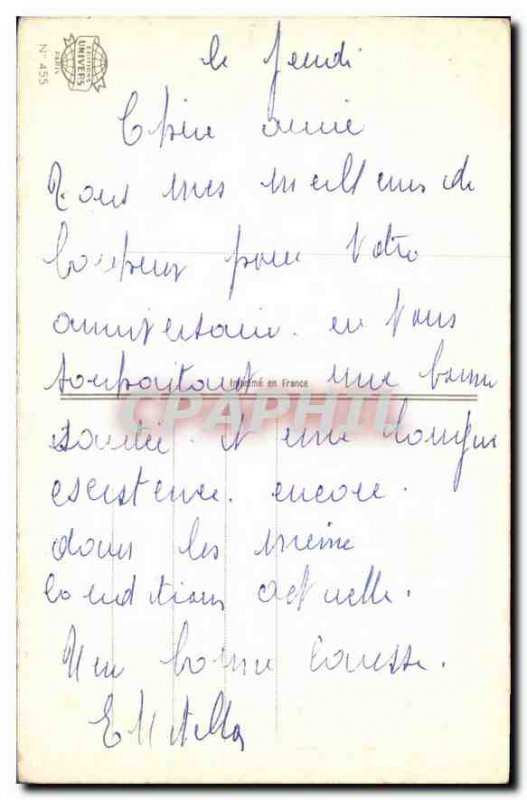 EDITIONS
UNIVERS
PARIS
N° 455
le Jeudi
Chère amie
Tous mes meilleurs de
pour Votre
anniversaire. en Vous
souhaitant une bonne
santée. et une longue
existence. encore.
dans les meine
conditions actuelle.
Une bonne caresse.
Imprimé en France
CPAPHIL